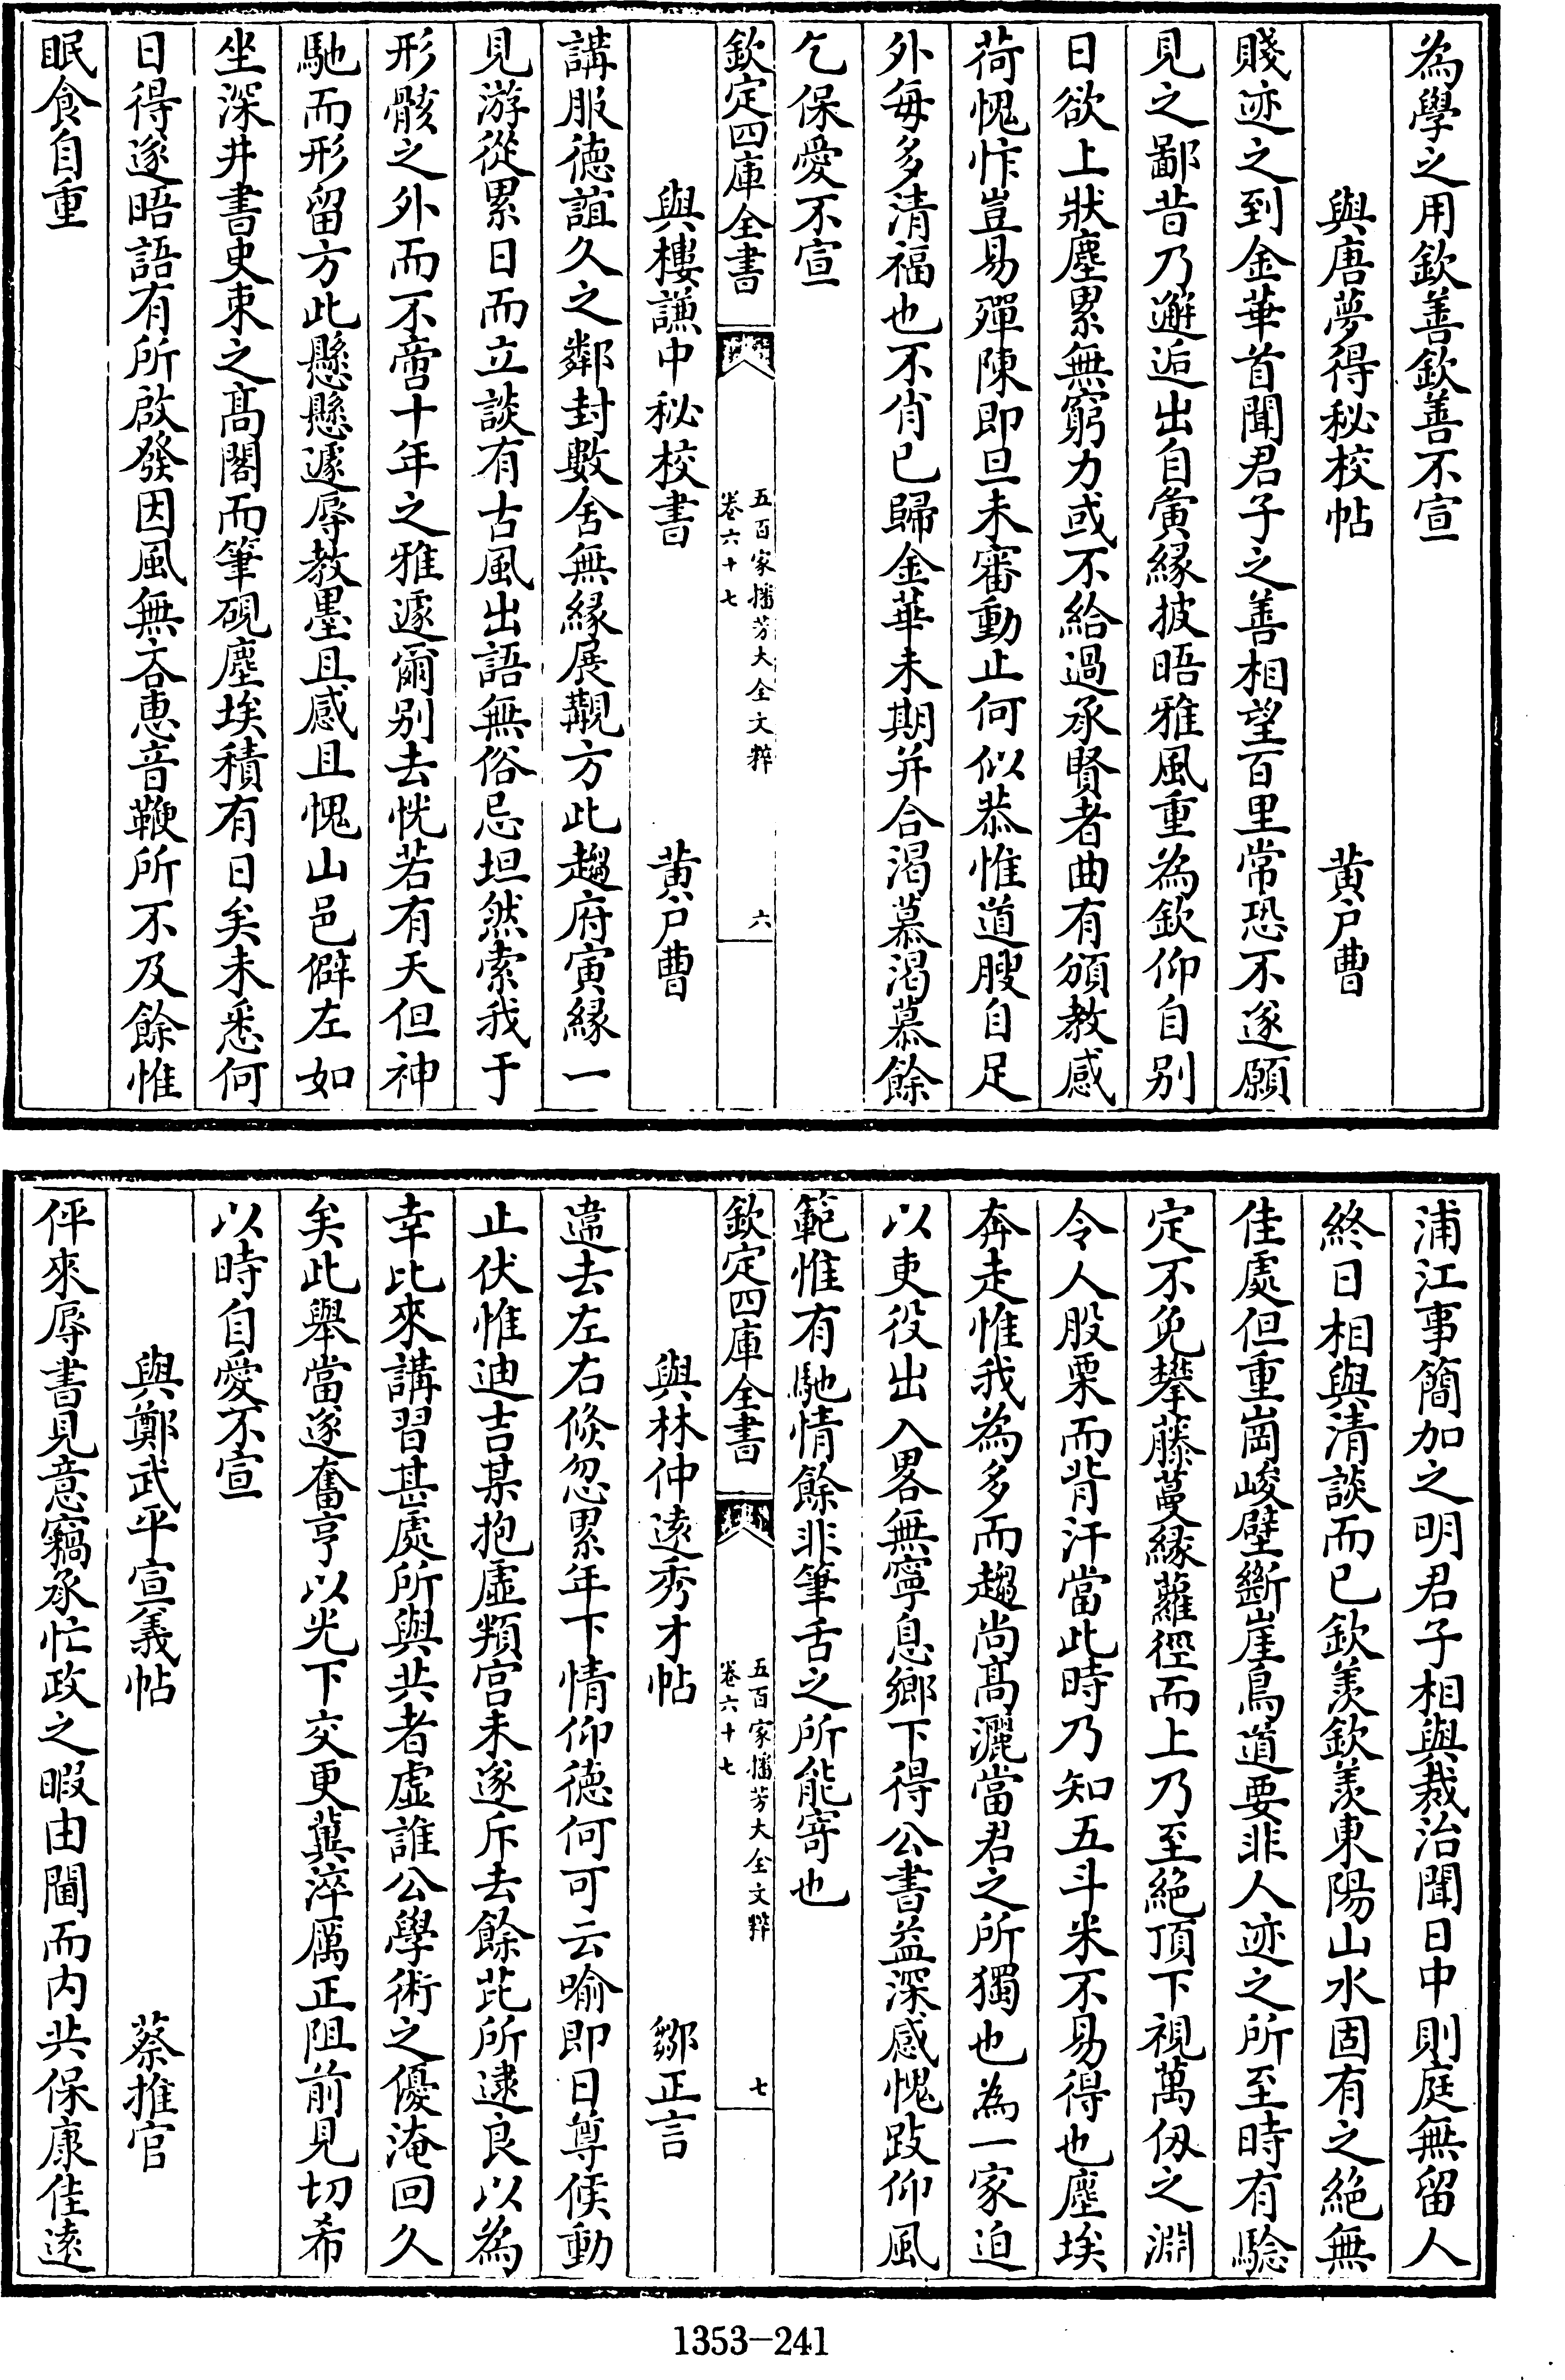 為學之用欽善欽善不宣
與唐夢得秘校帖　黄户曹
賤迹之到金華首聞君子之善相望百里常恐不遂願
見之鄙昔乃邂逅出自夤緣披晤雅風重為欽仰自别
日欲上狀塵累無窮力或不給過承賢者曲有頒教感
荷愧怍豈易殫陳即旦未審動止何似恭惟道腴自足
外毎多清福也不肖已歸金華未期并合渴慕渴慕餘
乞保愛不宣
欽定四庫全書
五百家播芳大全文粹
卷六十七
六
與樓謙中秘校書　黄户曹
講服德誼久之鄰封數舍無緣展覿方此趨府寅緣一
見游從累日而立談有古風出語無俗忌坦然索我于
形骸之外而不啻十年之雅遽爾别去恍若有天但神
馳而形留方此懸懸遽辱教墨且感且愧山邑僻左如
坐深井書史束之髙閣而筆硯塵埃積有日矣未悉何
日得遂晤語有所啟發因風無吝惠音鞭所不及餘惟
眠食自重
浦江事簡加之明君子相與裁治聞日中則庭無留人
終日相與清談而已欽羨欽羨東陽山水固有之絶無
佳處但重崗峻壁斷崖鳥道要非人迹之所至時有驗
定不免攀藤蔓緣蘿徑而上乃至絶頂下視萬仭之淵
令人股栗而背汗當此時乃知五斗米不易得也塵埃
奔走惟我為多而趨尚髙灑當君之所獨也為一家迫
以吏役出入畧無寧息鄉下得公書益深感愧跂仰風
範惟有馳情餘非筆舌之所能寄也
欽定四庫全書
五百家播芳大全文粹
卷六十七
七
與林仲逺秀才帖　鄒正言
違去左右倏忽累年下情仰德何可云喻即日尊候動
止伏惟迪吉某抱虚頖宫未遂斥去餘芘所逮良以為
幸比來講習甚處所與共者虚誰公學術之優淹回久
矣此舉當遂奮亨以光下交更冀淬厲正阻前見切希
以時自愛不宣
與鄭武平宣義帖　蔡推官
伻來辱書見意竊承忙政之暇由閫而内共保康佳逺
1353-241